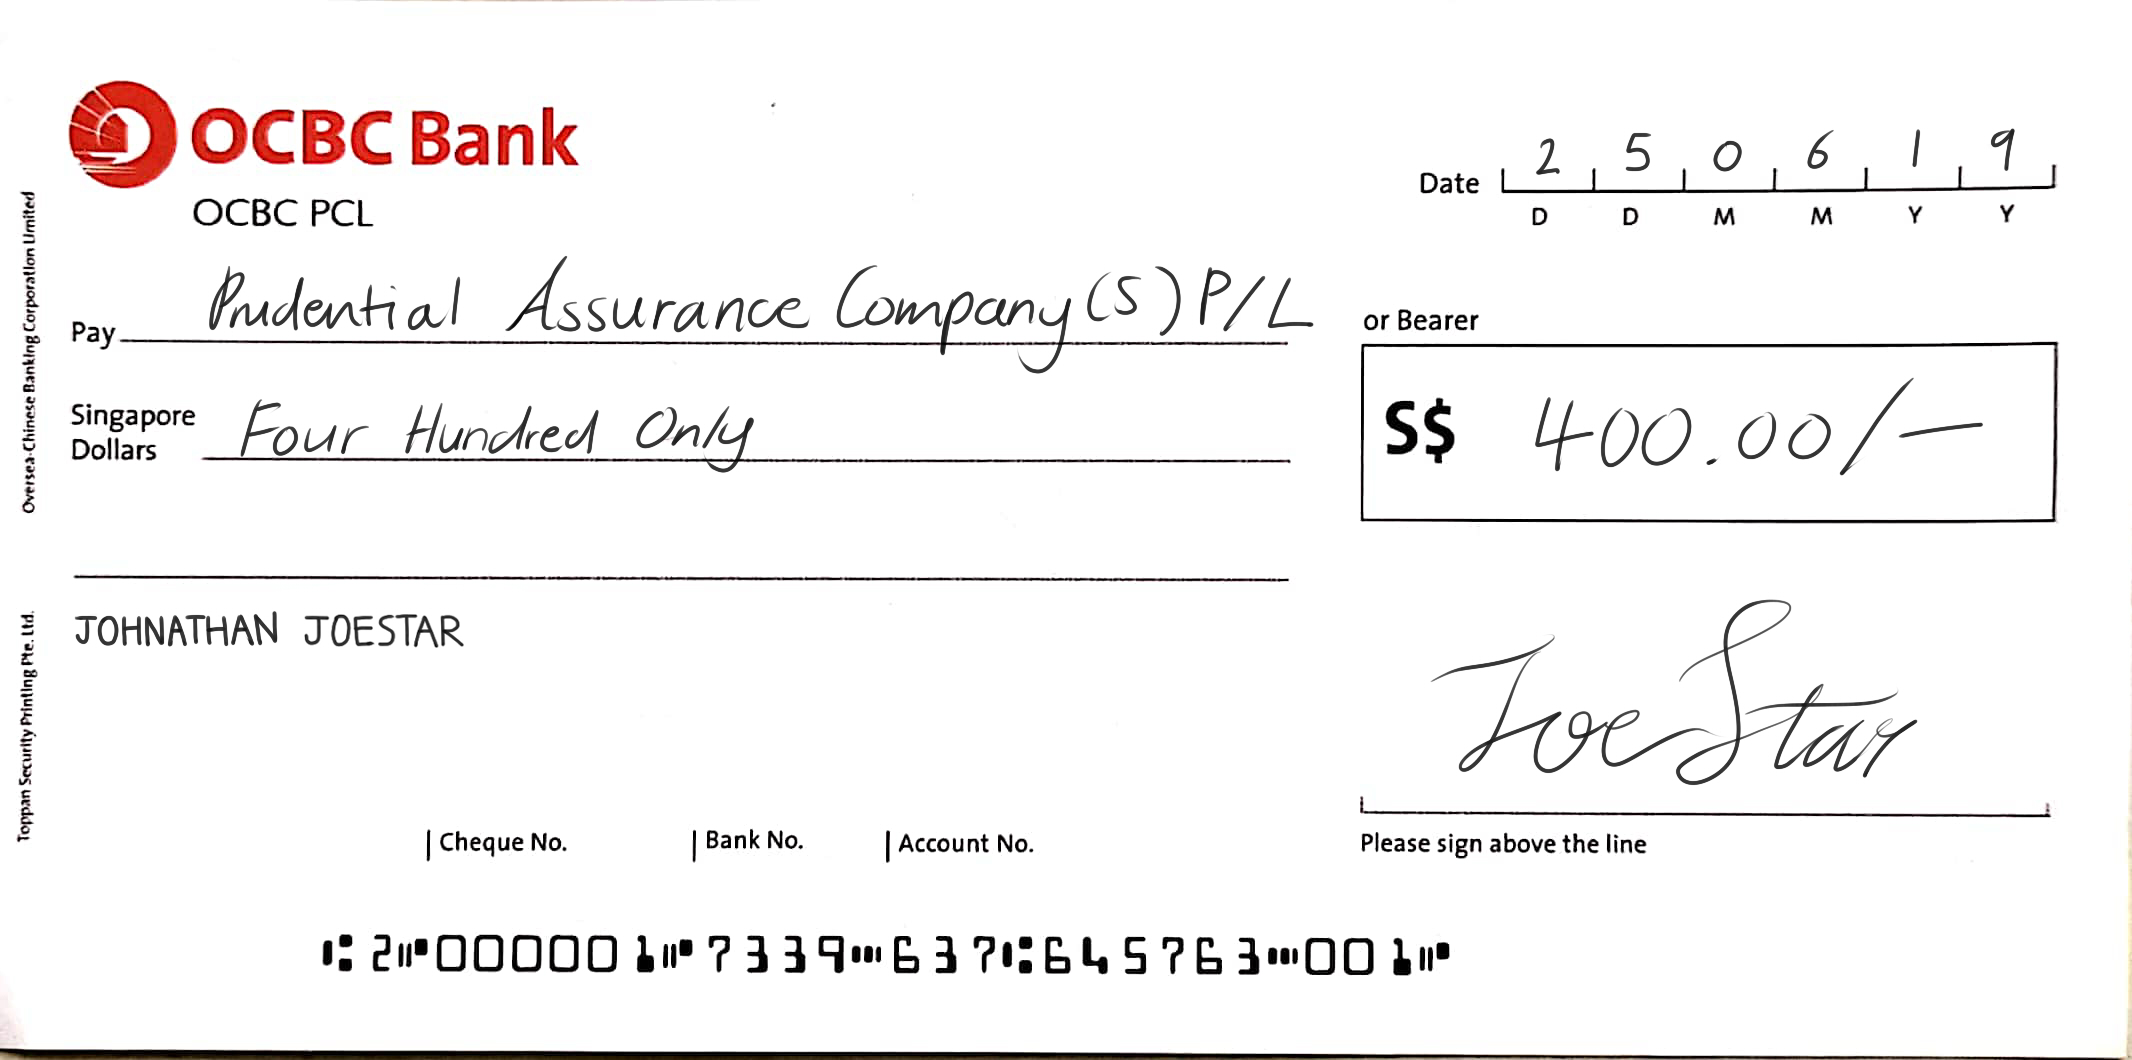 OCBC Bank
OCBC PCL
Date 2 5 0 6 1 9
D D M M Y Y
Pay Prudential Assurance Company (S) P/L or Bearer
Singapore Dollars Four Hundred Only
S$ 400.00/-
JOHNATHAN JOESTAR
JoeStar
Cheque No. Bank No. Account No.
Please sign above the line
⑆2⑈000001⑈7339⑉637⑆645763⑉001⑈
Oversea-Chinese Banking Corporation Limited
Toppan Security Printing Pte. Ltd.